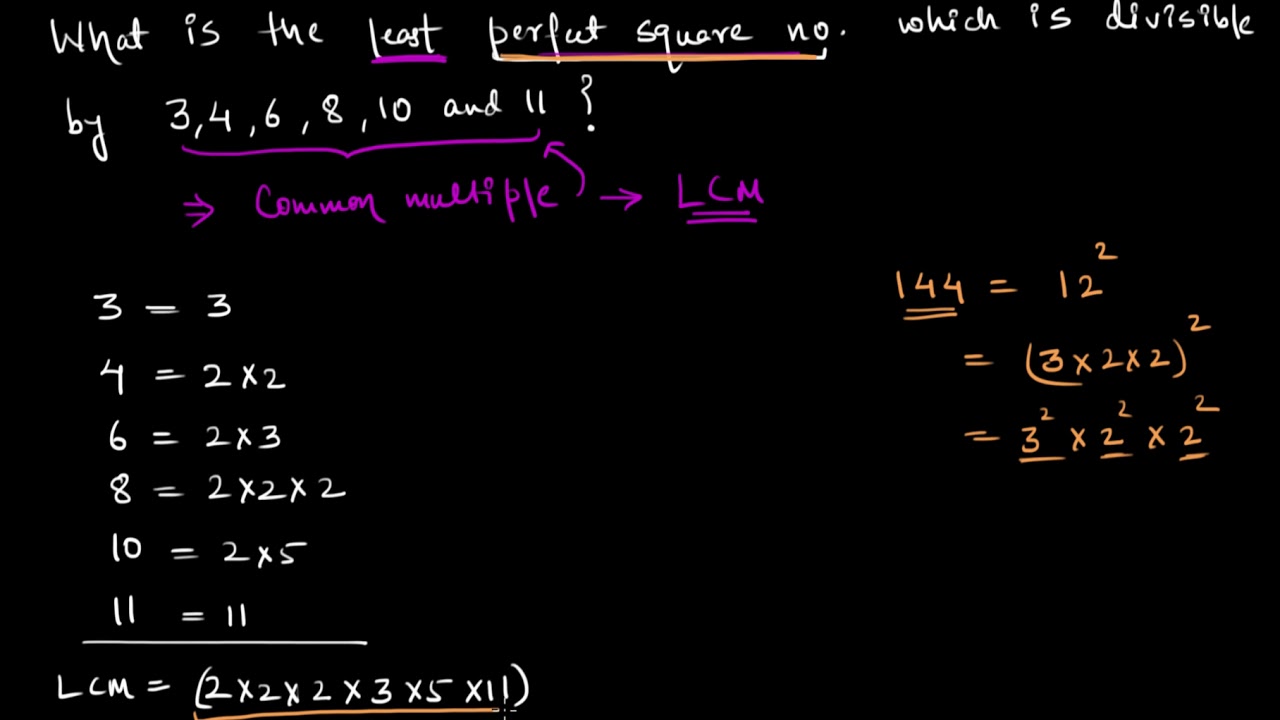 What is the least perfect square no. which is divisible
by 3, 4, 6, 8, 10 and 11 ?
⇒ Common multiple → LCM
3 = 3
4 = 2×2
6 = 2×3
8 = 2×2×2
10 = 2×5
11 = 11
LCM = (2×2×2×3×5×11)
144 = 12²
= (3×2×2)²
= 3² × 2² × 2²